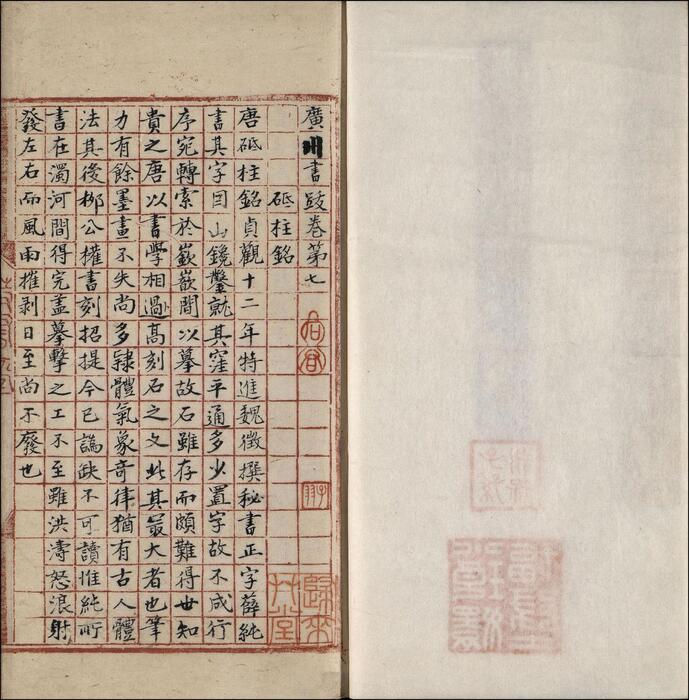 廣川書跋卷第七
砥柱銘
唐砥柱銘貞觀十二年特進魏徵撰秘書正字薛純
書其字因山鑱鑿就其窪平通多少置字故不成行
序宛轉索於嶔嶔間以摹故石雖存而頗難得世知
貴之唐以書學相過高刻石之文此其最大者也筆
力有餘墨畫不失尚多隸體氣象奇律猶有古人體
法其後柳公權書刻招提今已譌缺不可讀惟純所
書在濁河間得完蓋摹擊之工不至雖洪濤怒浪射
發左右而風雨摧剥日至尚不廢也